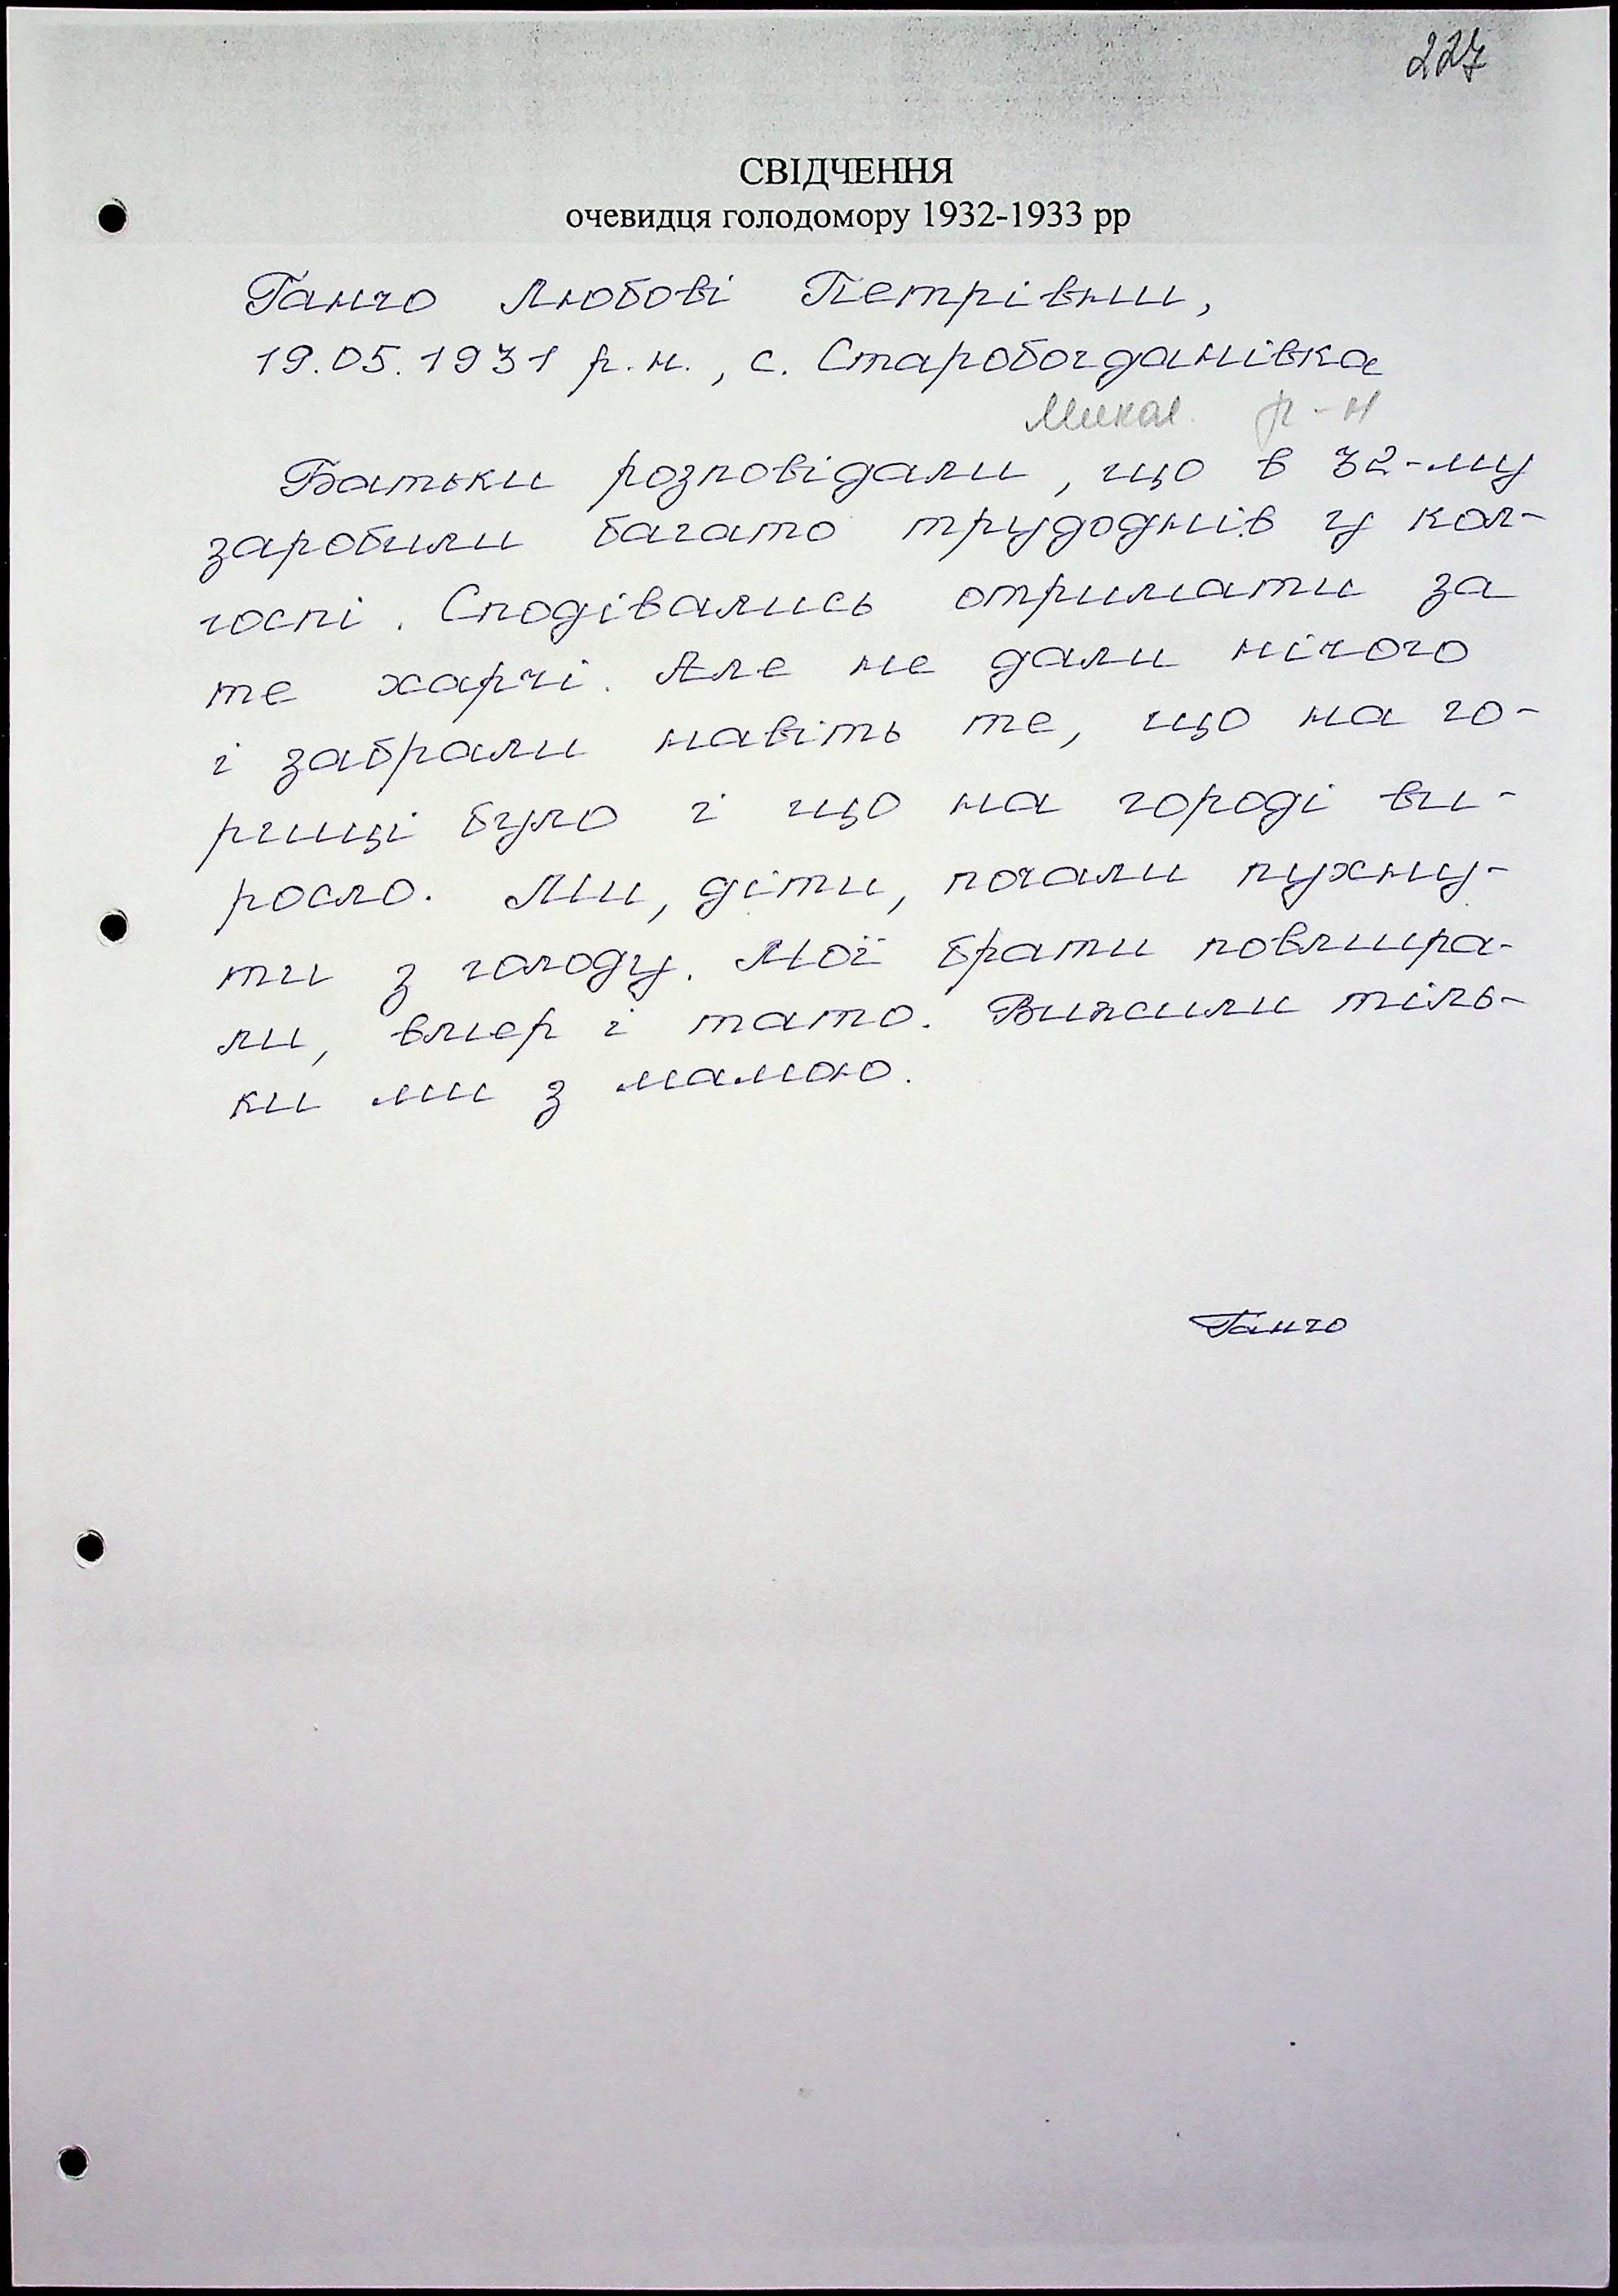 227
СВІДЧЕННЯ
очевидця голодомору 1932-1933 рр
Ганчо Любові Петрівни,
19.05.1931 р.н., с. Старобогданівка
Микол. р-н
Батьки розповідали, що в 32-му
заробили багато трудоднів у кол-
госпі. Сподівались отримати за
те харчі. Але не дали нічого
і забрали навіть те, що на го-
рищі було і що на городі ви-
росло. Ми, діти, почали пухну-
ти з голоду. Мої брати повмира-
ли, вмер і тато. Вижили тіль-
ки ми з мамою.
Ганчо